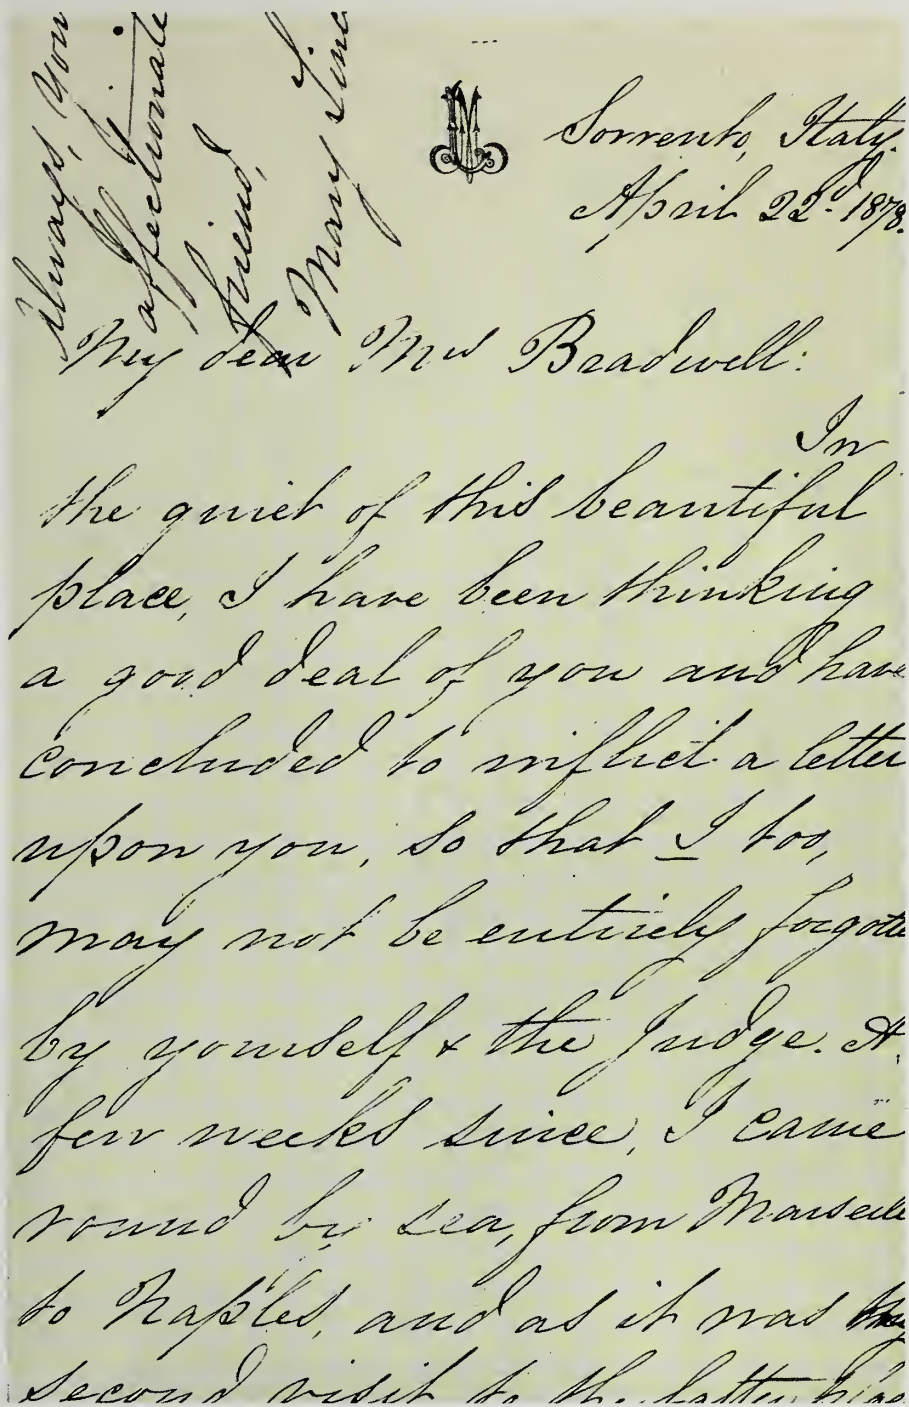 Always, You
affectionate
friend,
Mary Linc
Sorrento, Italy.
April 22d. 1878.
My dear Mrs Bradwell:
In
the quiet of this beautiful
place, I have been thinking
a good deal of you and have
concluded to inflict a letter
upon you, so that I too,
may not be entirely forgotte
by yourself & the Judge. A
few weeks since, I came
round by sea, from Marseille
to Naples, and as it was my
second visit to the latter place